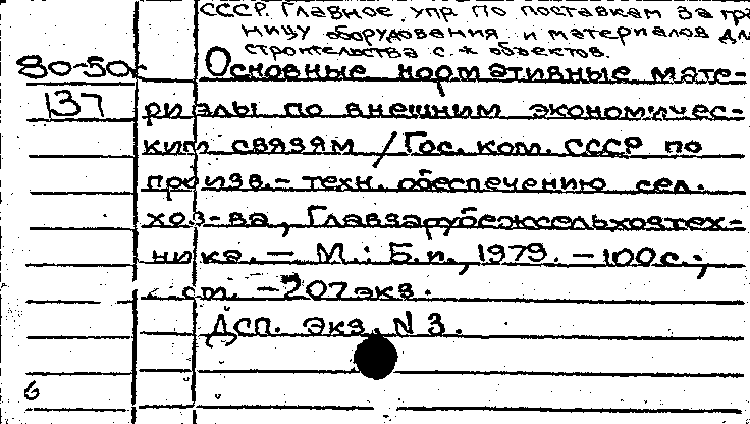 СССР. Главное упр. по поставкам за гра
ницу оборудования и материалов для
строительства с.х объектов.
80-50к Основные нормативные мате-
137 риалы по внешним экономичес-
ким связям / Гос. ком. СССР по
произв.- техн. обеспечению сел.
хоз-ва, Главзарубежсельхозтех-
ника. — М.: Б.и., 1979. – 100 с.;
ст. – 207 экз.
Дсп. Экз. N 3.
6